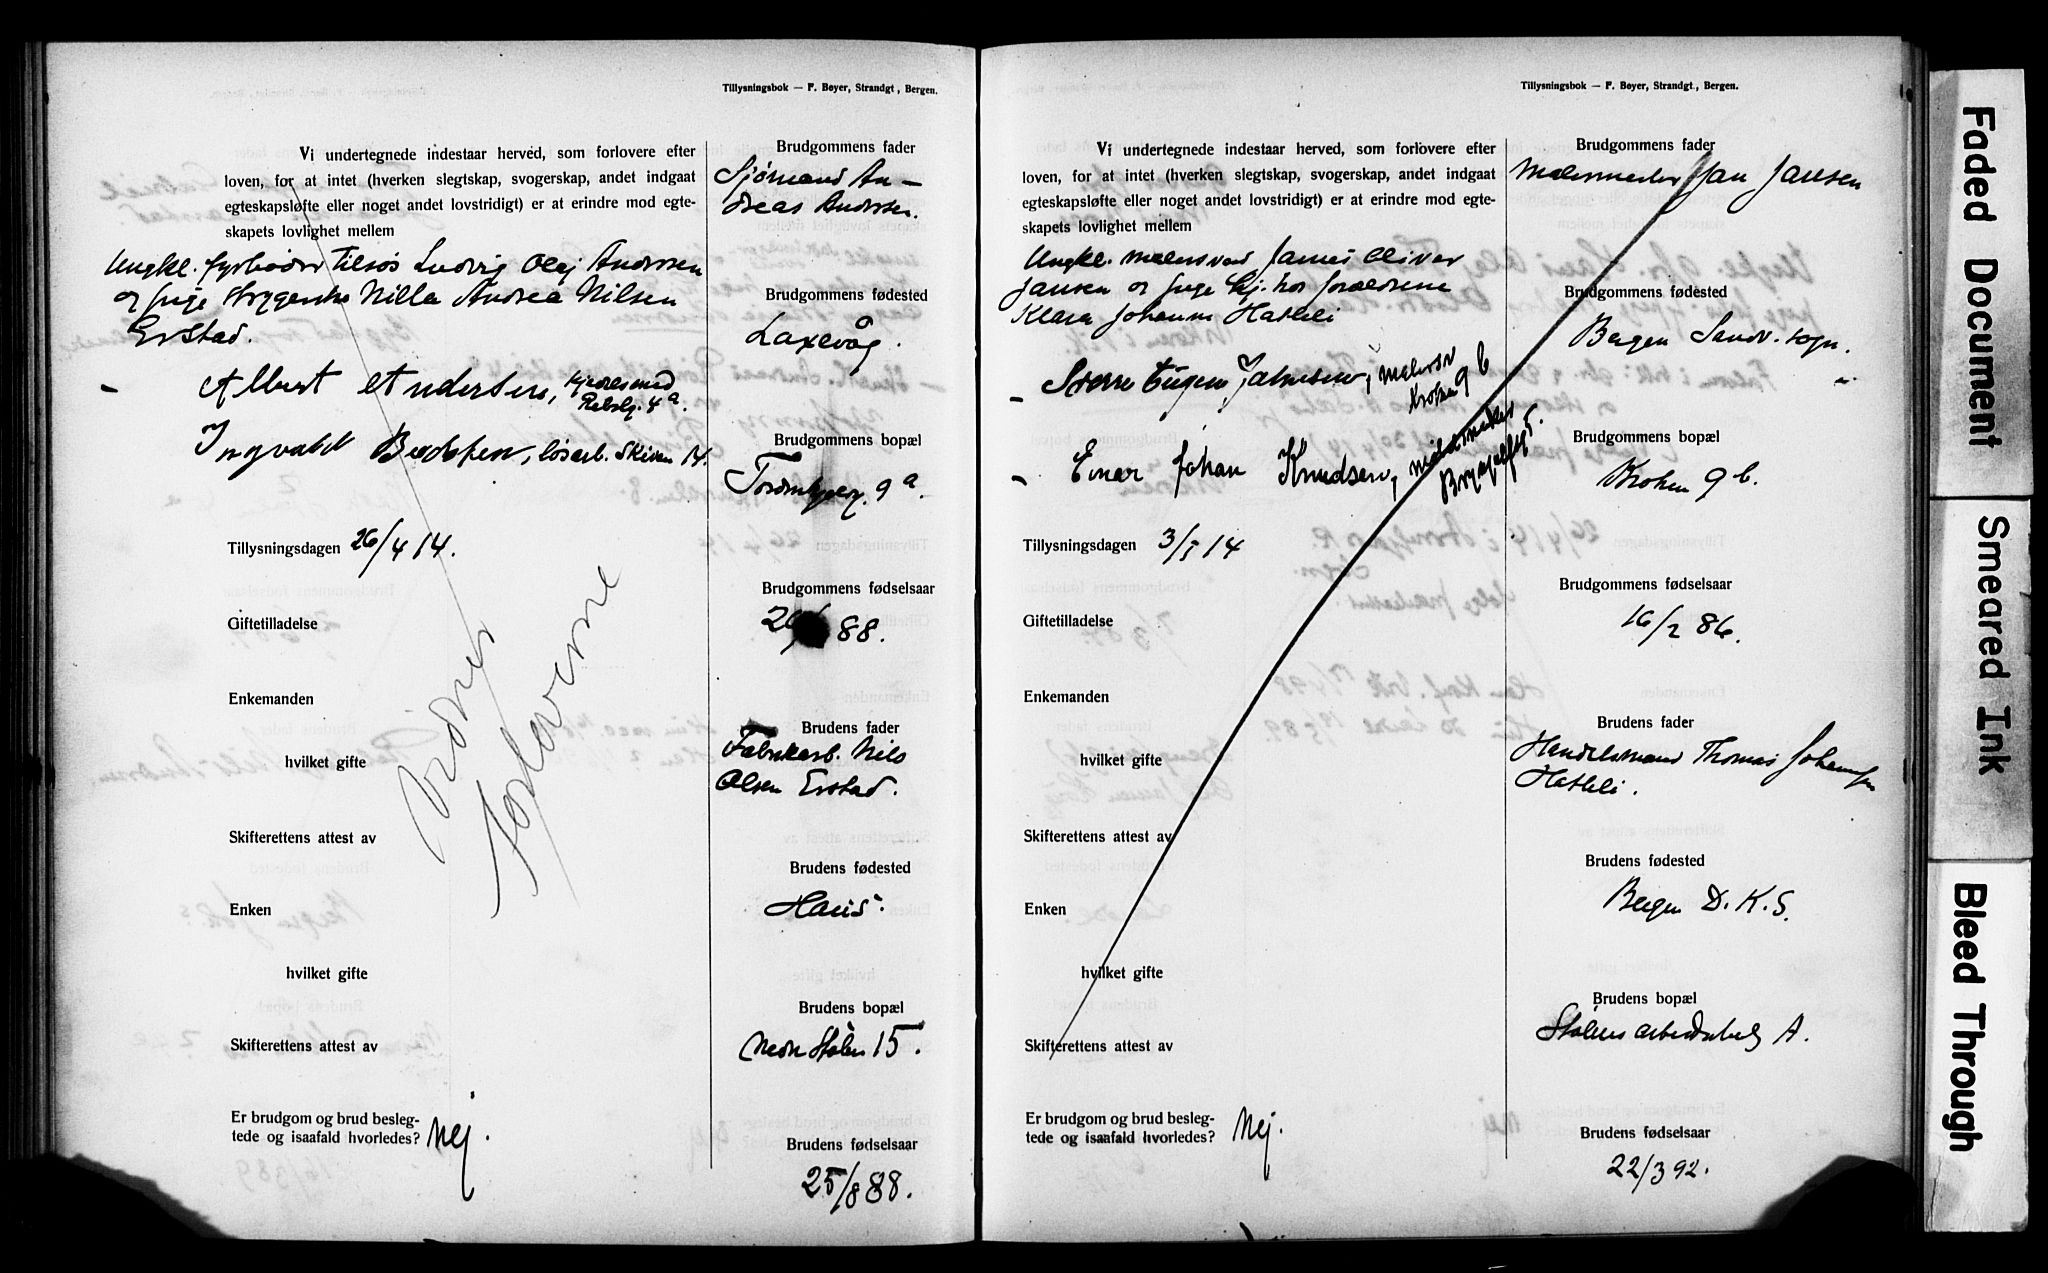 Tillysningsbok — F. Beyer, Strandgt, Bergen.
Vi undertegnede indestaar herved, som forlovere efter
loven, for at intet (hverken slegtskap, svogerskap, andet indgaat
egteskapsløfte eller noget andet lovstridigt) er at erindre mod egte-
skapets lovlighet mellem
Ungkl. fyrbøder Ludvig Olaj Andersen
og pige Nilla Andrea Nilsen
Erstad.
Albert Andersen,
Ingvald løsarb. Skiven 14.
Tillysningsdagen 26/4 14.
Giftetilladelse
Enkemanden
hvilket gifte
Skifterettens attest av
Enken
hvilket gifte
Skifterettens attest av
Er brudgom og brud besleg-
tede og isaafald hvorledes? Nej.
forloverne
Brudgommens fader
Sjømand An-
dreas Andersen.
Brudgommens fødested
Laxevåg.
Brudgommens bopæl
9a.
Brudgommens fødselsaar
88.
Brudens fader
Fabrikarb. Nils
Olsen Erstad.
Brudens fødested
Haus.
Brudens bopæl
Nedre Stølen 15.
Brudens fødselsaar
25/8 88.
Tillysningsbok — F. Beyer, Strandgt, Bergen.
Vi undertegnede indestaar herved, som forlovere efter
loven, for at intet (hverken slegtskap, svogerskap, andet indgaat
egteskapsløfte eller noget andet lovstridigt) er at erindre mod egte-
skapets lovlighet mellem
Ungkl. malersvend James Oliver
Jansen og pige hj. hos forældrene
Klara Johanne Hatleli
Eugen malersv
Kroken 9 b
Einar Johan Knudsen,
Tillysningsdagen 3/5 14
Giftetilladelse
Enkemanden
hvilket gifte
Skifterettens attest av
Enken
hvilket gifte
Skifterettens attest av
Er brudgom og brud besleg-
tede og isaafald hvorledes? Nej.
Brudgommens fader
Malermester Jan Jansen
Brudgommens fødested
Bergen Sandv. sogn.
Brudgommens bopæl
Kroken 9 b.
Brudgommens fødselsaar
16/2 86.
Brudens fader
Handelsmand Thomas Johannes
Hatleli.
Brudens fødested
Bergen D.K.S.
Brudens bopæl
Stølens arbeiderbolig A.
Brudens fødselsaar
22/3 92.
Faded Document
Smeared Ink
Bleed Through